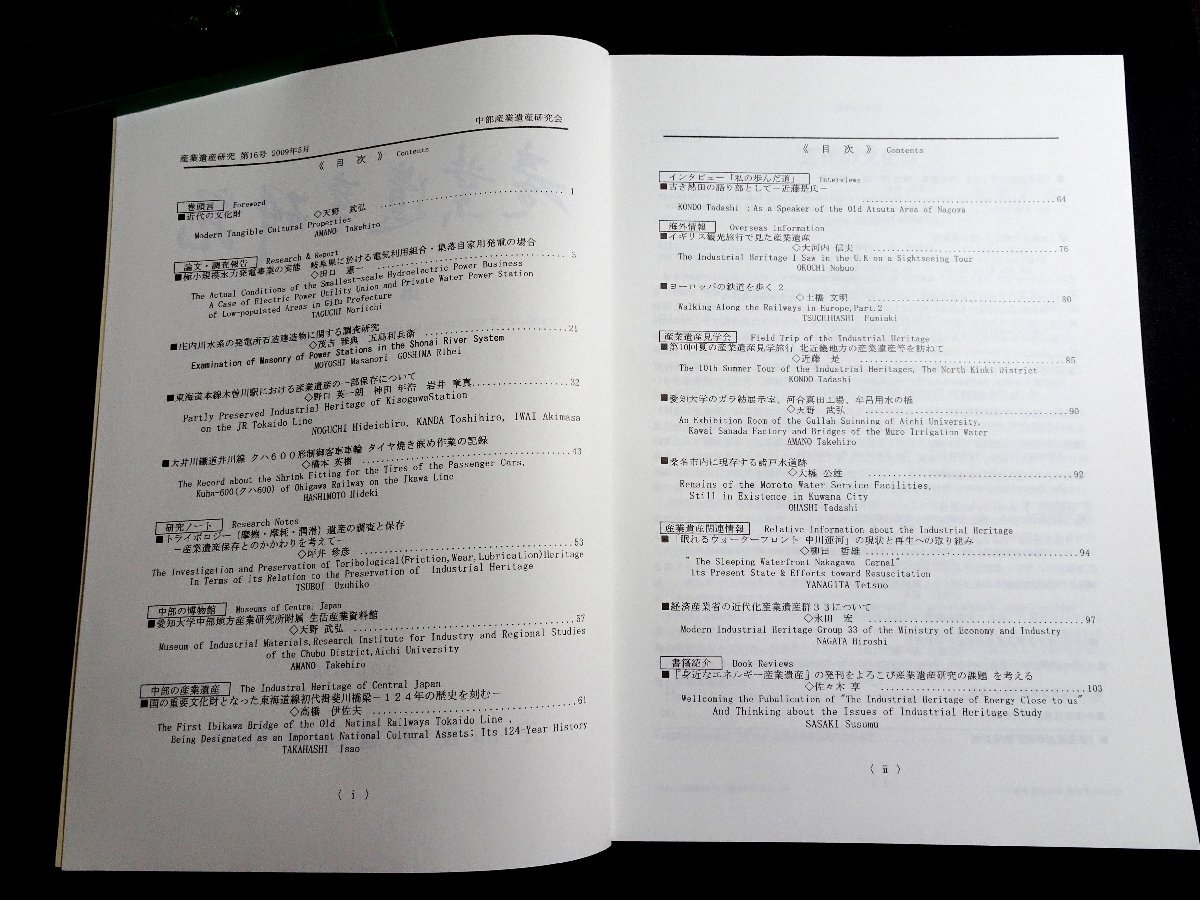 中部産業遺産研究会
産業遺産研究 第16号 2009年5月
《 目 次 》 Contents
巻頭言 Foreword
■近代の文化財
◇天野 武弘 1
Modern Tangible Cultural Properties
AMANO Takehiro
論文・調査報告 Research & Report
■極小規模水力発電事業の実態 岐阜県に於ける電気利用組合・集落自家用発電の場合
◇田口 憲一 3
The Actual Conditions of the Smallest-scale Hydroelectric Power Business
A Case of Electric Power Utility Union and Private Water Power Station
of Low-populated Areas in Gifu Prefecture
TAGUCHI Noriichi
■庄内川水系の発電所石造建造物に関する調査研究
◇茂吉 雅典 五島利兵衛 21
Examination of Masonry of Power Stations in the Shonai River System
MOYOSHI Masanori GOSHINA Rihei
■東海道本線木曽川駅における産業遺産の一部保存について
◇野口 英一朗 神田 年浩 岩井 章真 32
Partly Preserved Industrial Heritage of KisogawaStation
on the JR Tokaido Line
NOGUCHI Hideichiro, KANDA Toshihiro, IWAI Akimasa
■大井川鐵道井川線 クハ600形制御客車車輪 タイヤ焼き嵌め作業の記録
◇橋本 英樹 43
The Record about the Shrink Fitting for the Tires of the Passenger Cars,
Kuha-600(クハ600) of Ohigawa Railway on the Ikawa Line
HASHIMOTO Hideki
研究ノート Research Notes
■トライボロジー(摩擦・摩耗・潤滑)遺産の調査と保存
－産業遺産保存とのかかわりを考えて－
◇坪井 珍彦 53
The Investigation and Preservation of Toribological(Friction,Wear,Lubrication)Heritage
In Terms of its Relation to the Preservation of Industrial Heritage
TSUBOI Uzuhiko
中部の博物館 Museums of Central Japan
■愛知大学中部地方産業研究所附属 生活産業資料館
◇天野 武弘 57
Museum of Industrial Materials,Research Institute for Industry and Regional Studies
of the Chubu District,Aichi University
AMANO Takehiro
中部の産業遺産 The Indastrial Heritage of Central Japan
■国の重要文化財となった東海道線初代揖斐川橋梁－124年の歴史を刻む－
◇高橋 伊佐夫 61
The First Ibikawa Bridge of the Old Natinal Railways Tokaido Line ,
Being Designated as an Important National Cultural Assets; Its 124-Year History
TAKAHASHI Isao
〈 i 〉
《 目 次 》 Contents
インタビュー「私の歩んだ道」 Interviews
■古き熱田の語り部として－近藤是氏－
64
KONDO Tadashi : As a Speaker of the Old Atsuta Area of Nagoya
海外情報 Overseas Information
■イギリス観光旅行で見た産業遺産
◇大河内 信夫 76
The Industrial Heritage I Saw in the U.K on a Sightseeing Tour
OKOCHI Nobuo
■ヨーロッパの鉄道を歩く 2
◇土橋 文明 80
Walking Along the Railways in Europe,Part.2
TSUCHIHASHI Fumiaki
産業遺産見学会 Field Trip of the Industrial Heritage
■第10回夏の産業遺産見学旅行 北近畿地方の産業遺産等を訪ねて
◇近藤 是 85
The 10th Summer Tour of the Industrial Heritages, The North Kinki District
KONDO Tadashi
■愛知大学のガラ紡展示室、河合真田工場、牟呂用水の橋
◇天野 武弘 90
An Exhibition Room of the Gullah Spinning of Aichi University,
Kawai Sanada Factory and Bridges of the Muro Irrigation Water
AMANO Takehiro
■桑名市内に現存する諸戸水道跡
◇大橋 公雄 92
Remains of the Moroto Water Service Facilities,
Still in Existence in Kuwana City
OHASHI Tadashi
産業遺産関連情報 Relative Information about the Industrial Heritage
■「眠れるウォーターフロント 中川運河」の現状と再生への取り組み
◇柳田 哲雄 94
"The Sleeping Waterfront Nakagawa Carnel"
Its Present State & Efforts toward Resuscitation
YANAGITA Tetsuo
■経済産業省の近代化産業遺産群33について
◇永田 宏 97
Modern Industrial Heritage Group 33 of the Ministry of Economy and Industry
NAGATA Hiroshi
書籍紹介 Book Reviews
■『身近なエネルギー産業遺産』の発刊をよろこび産業遺産研究の課題を考える
◇佐々木 享 103
Wellcoming the Pubalication of "The Industrial Heritage of Energy Close to us"
And Thinking about the Issues of Industrial Heritage Study
SASAKI Susumu
〈 ii 〉